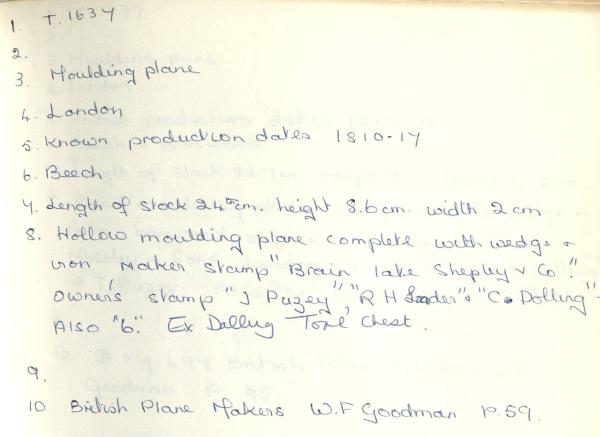 1. T.1634
2.
3. Moulding plane
4. London
5. Known production dates 1810-14
6. Beech
7. Length of stock 24 cm. height 8.6 cm. width 2 cm
8. Hollow moulding plane complete with wedge &
iron Maker stamp "Brain late Shepley & Co."
Owner's stamp "J Puzey", "R H" & "C. Dolling" -
Also "6". Ex Dalling Tool Chest.
9.
10 British Plane Makers W.F Goodman P.59.